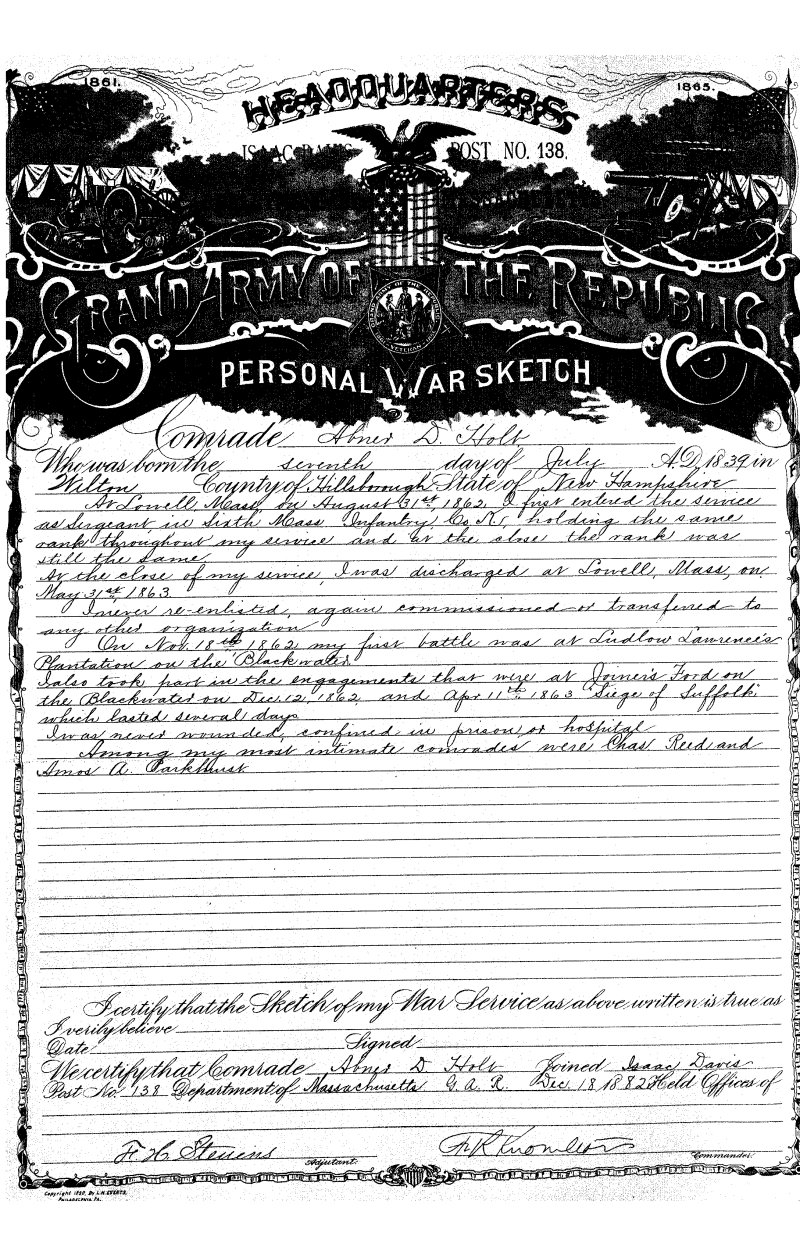 1861.
1865.
HEADQUARTERS
ISAAC DAVIS POST NO. 138.
GRAND ARMY OF THE REPUBLIC
PERSONAL WAR SKETCH
Comrade Abner D. Holt
Who was born the seventh day of July A.D. 1839 in
Wilton County of Hillsborough State of New Hampshire
At Lowell, Mass, on August 31st, 1862, I first entered the service
as Sergeant in Sixth Mass Infantry, Co. K, holding the same
rank throughout my service and at the close the rank was
still the same
At the close of my service, I was discharged at Lowell, Mass, on
May 31st, 1863
I never re-enlisted, again commissioned or transferred to
any other organization
On Nov. 18th 1862 my first battle was at Ludlow Lawrence's
Plantation on the Blackwater
I also took part in the engagements that were at Joiner's Ford on
the Blackwater on Dec. 12, 1862 and Apr 11th 1863 Siege of Suffolk
which lasted several days
I was never wounded, confined in prison or hospital
Among my most intimate comrades were Chas Reed and
Amos A. Parkhurst
I certify that the Sketch of my War Service as above written is true as
I verily believe
Date Signed
We certify that Comrade Abner D Holt Joined Isaac Davis
Post No. 138 Department of Massachusetts G.A.R. Dec 18 1882 Held Offices of
F. H. Stevens Adjutant. Knowlton Commander.
Copyright 1890, By L.H. EVERTS,
PHILADELPHIA, PA.